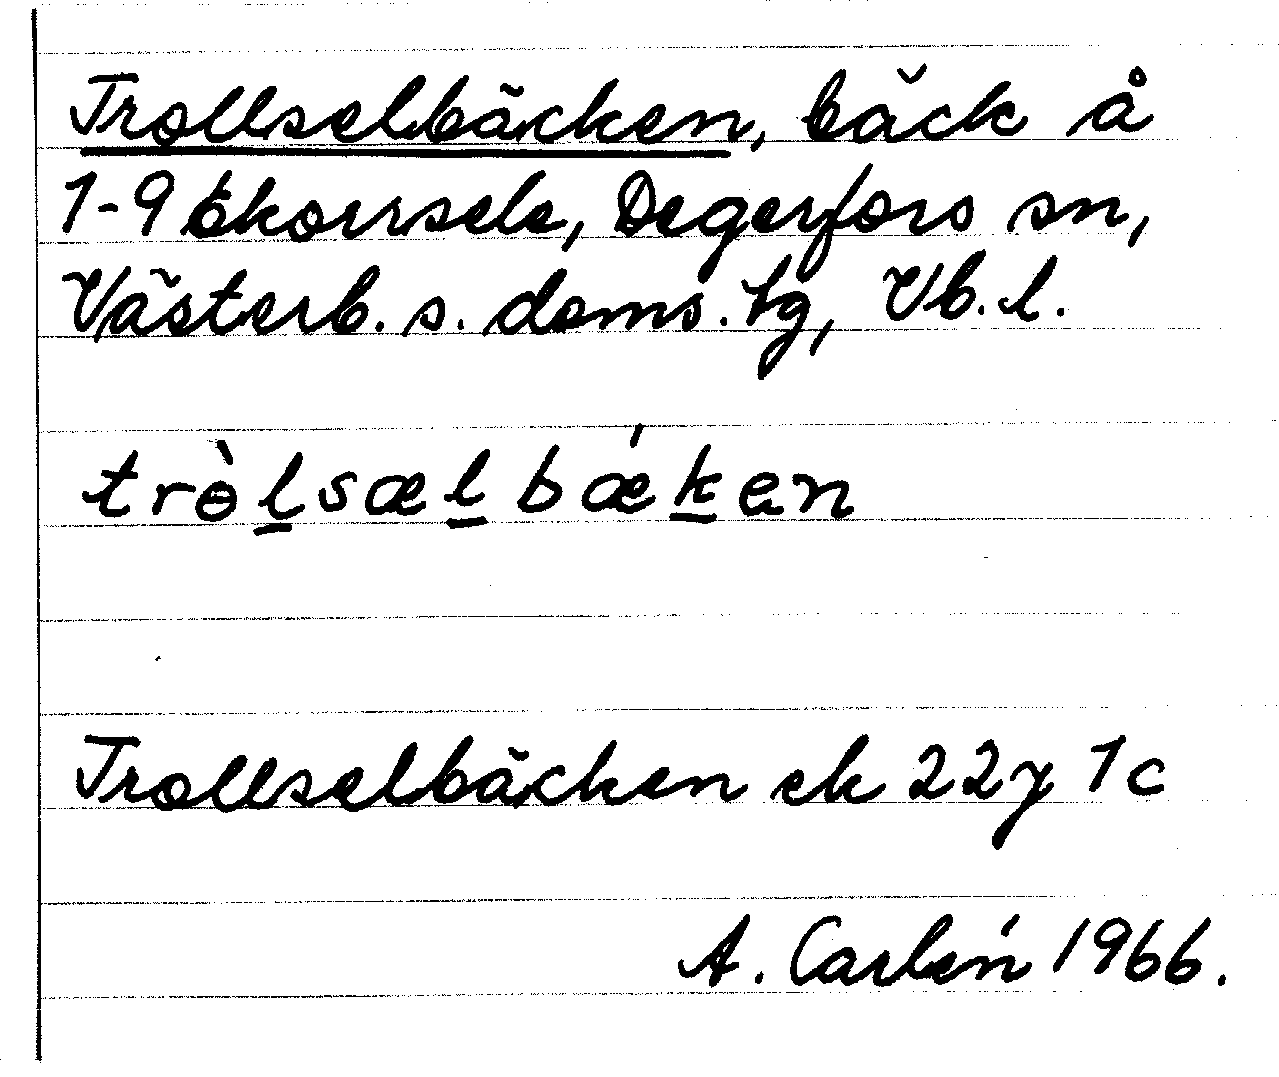 Trollselbäcken, bäck å
1-9 Ekorrsele, Degerfors sn,
Västerb. s. doms. tg, Vb. l.
trɵ̀l̲sæl̲bǽk̲en
Trollselbäcken ek 22y 1c
A. Carlén 1966.